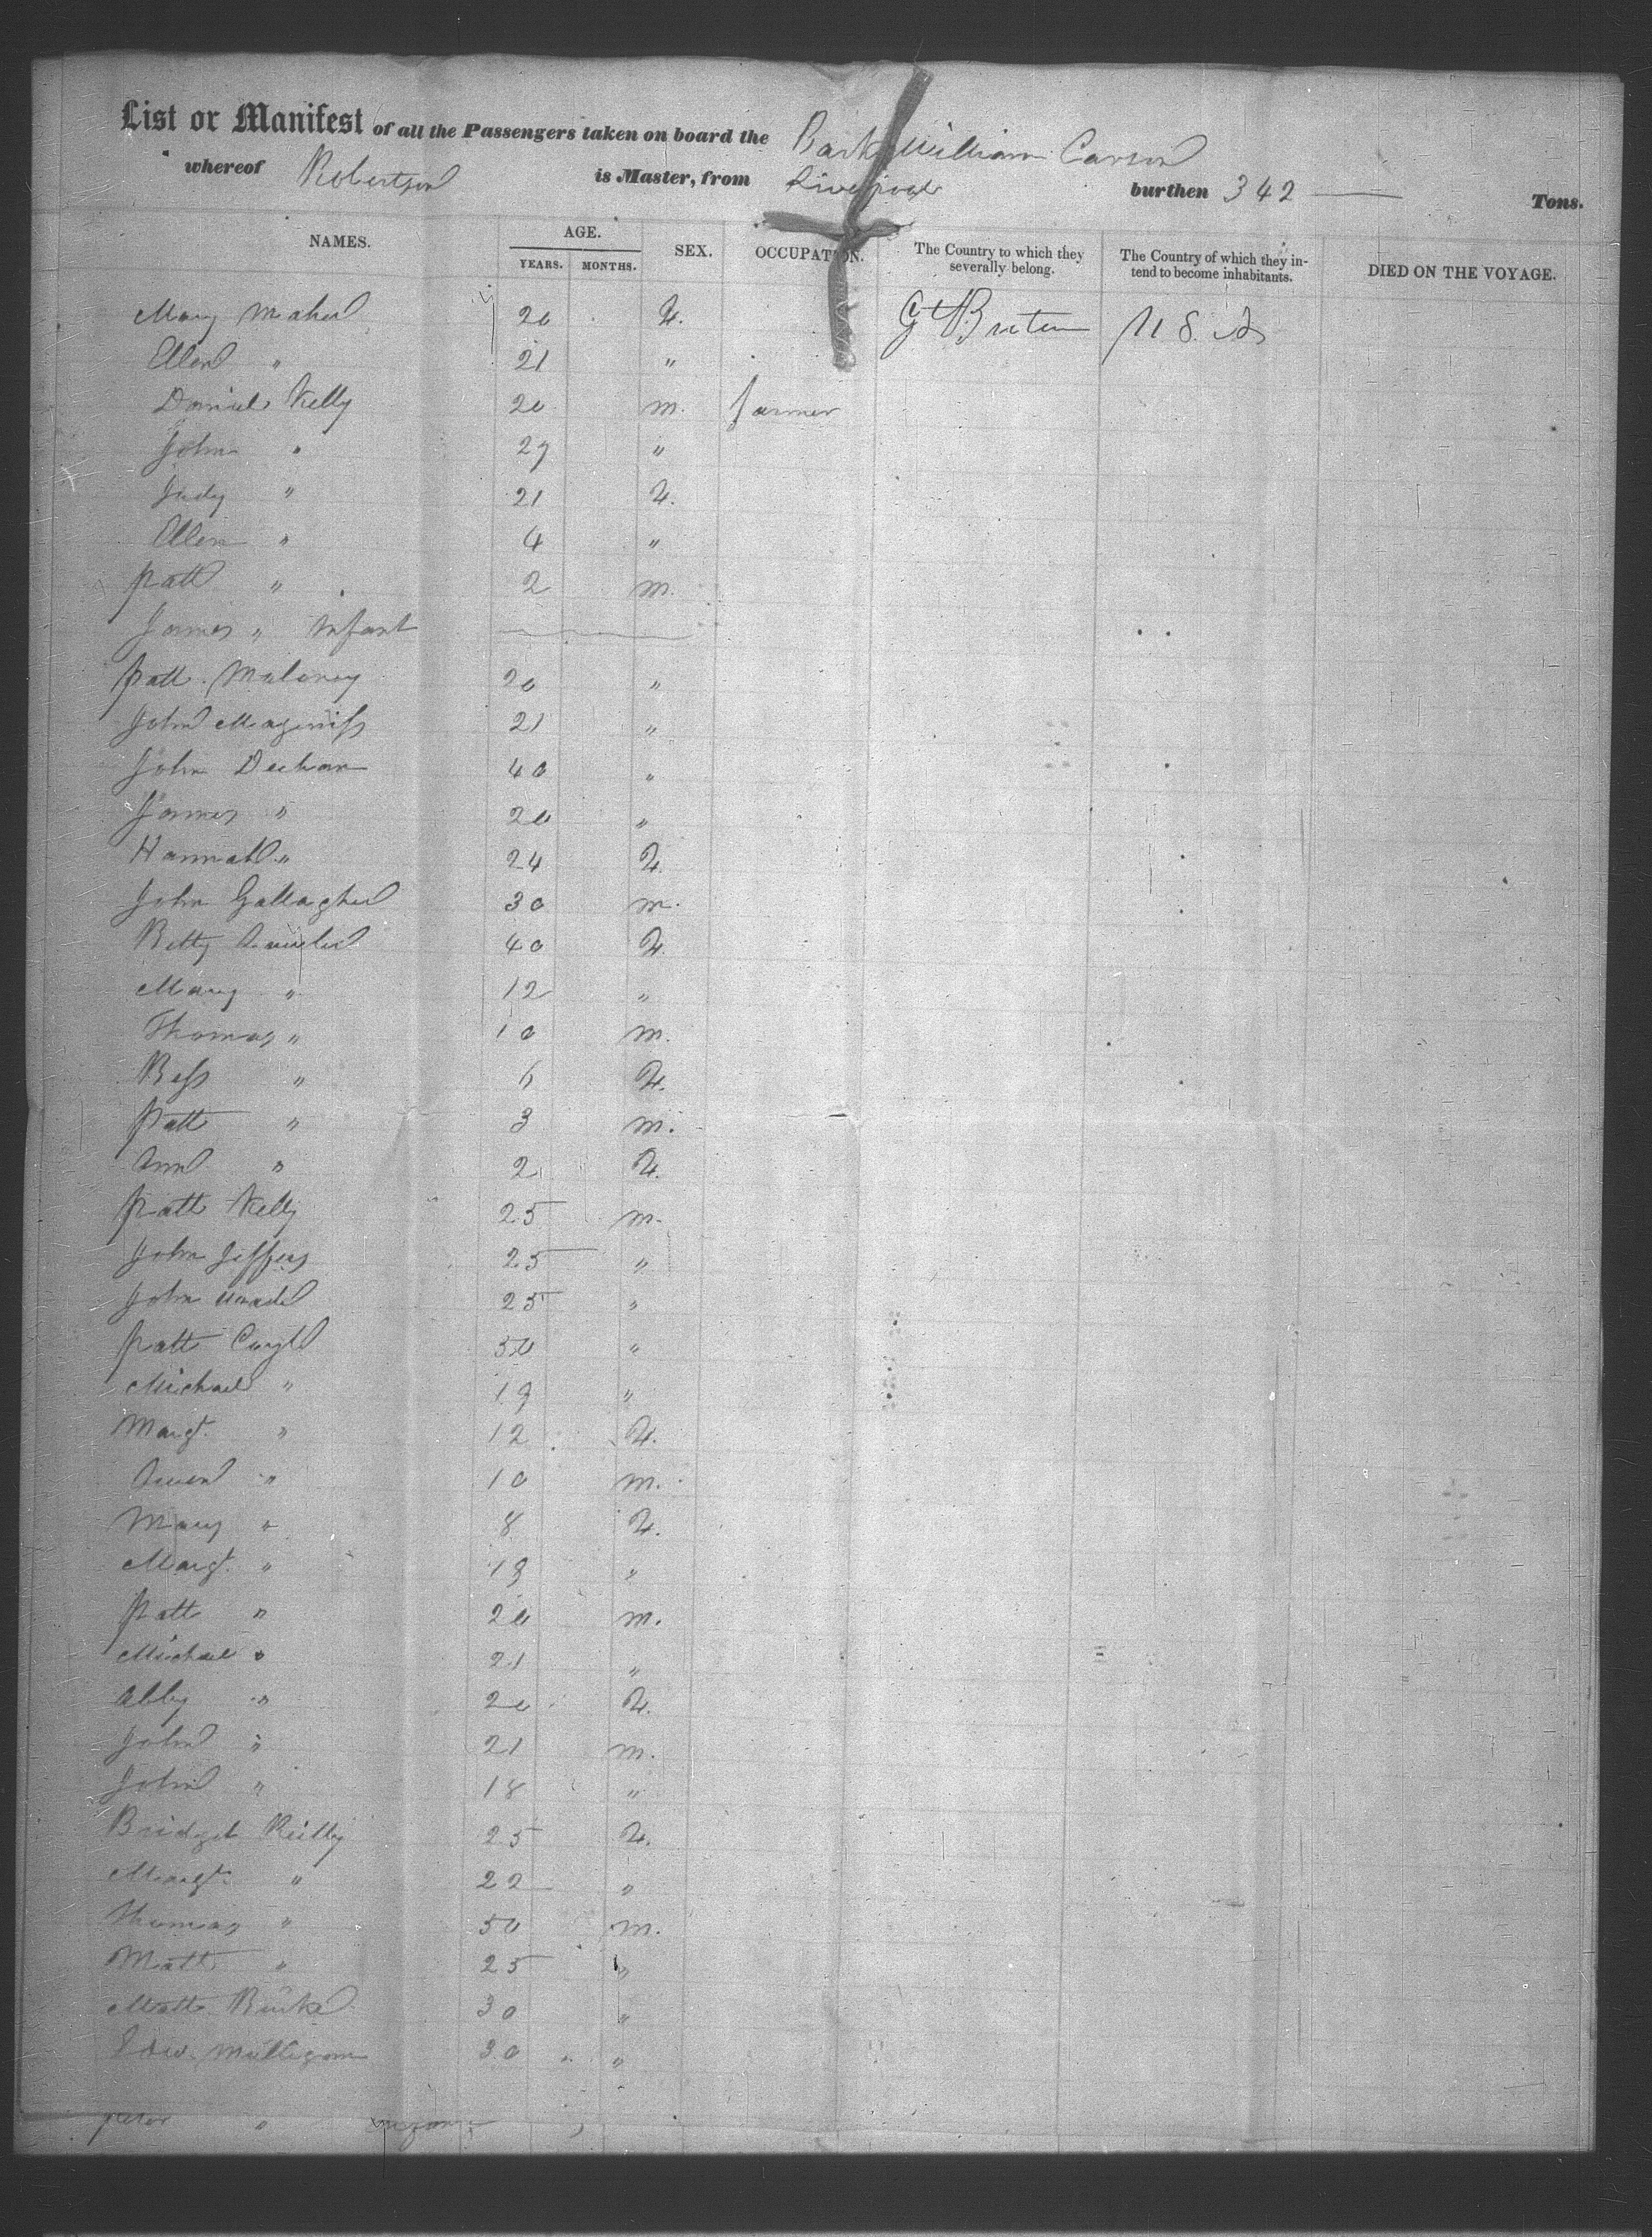 List or Manifest of all the Passengers taken on board the Bark William Carson
whereof Robertson is Master, from Liverpool burthen 342 Tons.
NAMES. AGE. YEARS. MONTHS. SEX. OCCUPATION. The Country to which they severally belong. The Country of which they intend to become inhabitants. DIED ON THE VOYAGE.
Mary Maher 20 F. Gt Britain U S. A
Ellen " 21 "
Daniel Kelly 20 m. farmer
John " 27 "
Judy " 21 F.
Ellen " 4 "
Patt " 2 m.
James " Infant
Patt. Maloney 20 "
John Maginiss 21 "
John Deehan 40 "
James " 20 "
Hannah " 24 F.
John Gallagher 30 m.
Betty 40 F.
Mary " 12 "
Thomas " 10 m.
Bess " 6 F.
Patt " 3 m.
Ann " 2 F.
Patt Kelly 25 m.
John Jeffers 25 "
John 25 "
Patt 50 "
Michael " 19 "
Margt. " 12 F.
Owen " 10 m.
Mary " 8 F.
Margt. " 19 "
Patt " 20 m.
Michael " 21 "
Abby " 20 F.
John " 21 m.
John " 18 "
Bridget Reilly 25 F.
Margt. " 22 "
Thomas " 50 m.
Matt " 25 "
Matt Burke 30 "
Edw. Mulligan 30 "
Peter "